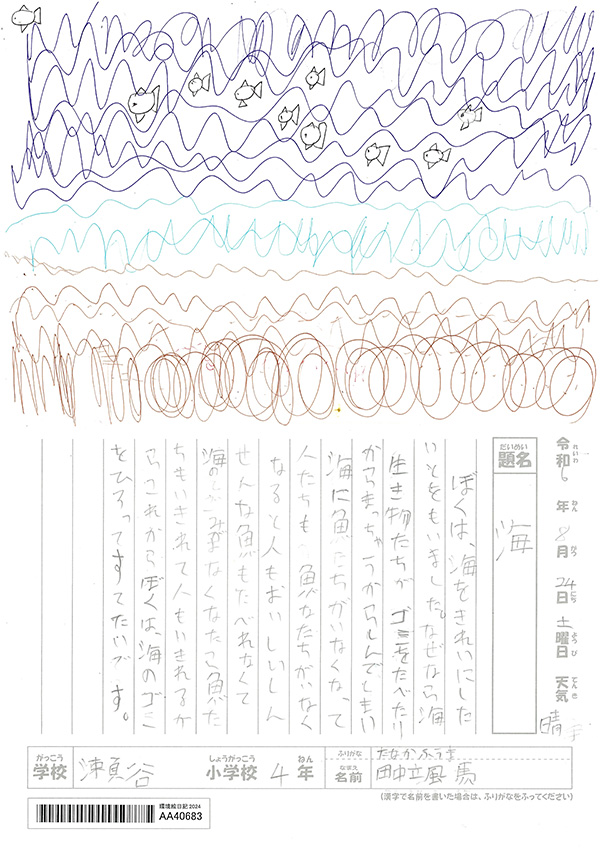 令和6年8月24日土曜日 天気 晴
れいわ ねん がつ にち ようび てんき
だいめい
題名
海
ぼくは、海をきれいにした
いとをもいました。なぜなら海
生き物たちが ゴミをたべたり
からまっちゃうからしんでしまい
海に魚たちがいなくなって
人たちも 魚 たちがいなく
なると人もおいしいしん
せんな魚もたべれなくて
海のごみがなくなたら魚た
ちもいきれて人もいきれるか
らこれからぼくは、海のゴミ
をひろってすてたいです。
がっこう しょうがっこう ねん
学校 瀬谷 小学校 4年
ふりがな たなかふうま
なまえ
名前 田中立風馬
(漢字で名前を書いた場合は、ふりがなをふってください)
環境絵日記 2024
AA40683